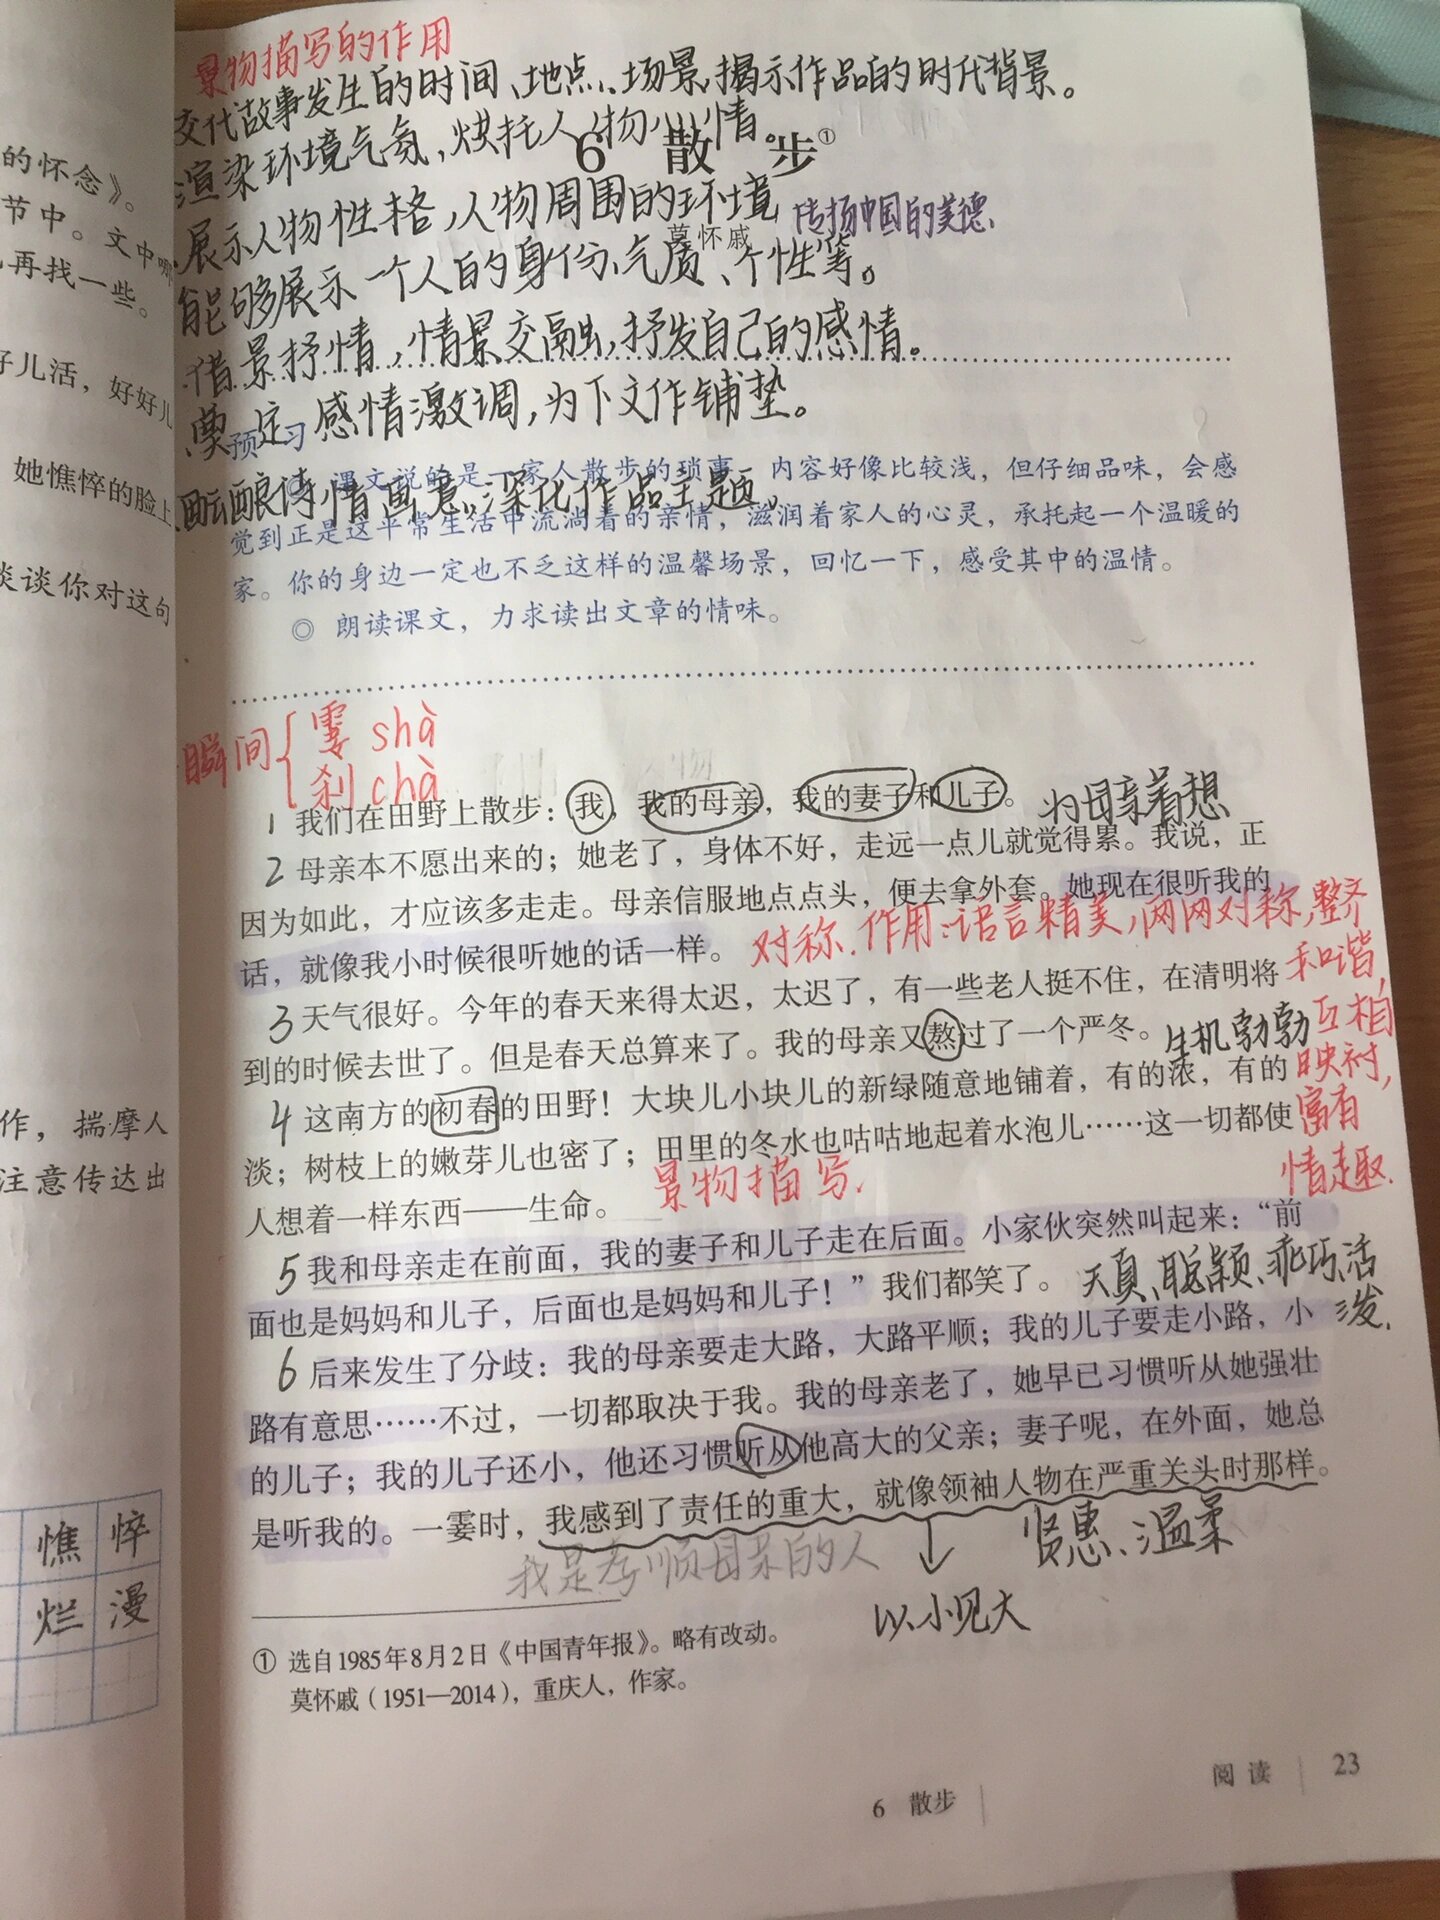 的怀念》。
节中。文中哪
再找一些。
好儿活，好好儿
她憔悴的脸上
谈谈你对这句
作，揣摩人
注意传达出
憔悴
烂漫
景物描写的作用
交代故事发生的时间、地点、场景,揭示作品的时代背景。
渲染环境气氛,烘托人物心情。
6 散步①
展示人物性格,人物周围的环境
传扬中国的美德.
莫怀戚
能够展示一个人的身份、气质、个性等。
借景抒情,情景交融,抒发自己的感情。
奠定感情激调,为下文作铺垫。
预习
◎ 课文说的是一家人散步的琐事，内容好像比较浅，但仔细品味，会感
诗情画意,深化作品主题。
觉到正是这平常生活中流淌着的亲情，滋润着家人的心灵，承托起一个温暖的
家。你的身边一定也不乏这样的温馨场景，回忆一下，感受其中的温情。
◎ 朗读课文，力求读出文章的情味。
瞬间{霎 shà
刹 chà
1 我们在田野上散步：我，我的母亲，我的妻子和儿子。
为母亲着想
2 母亲本不愿出来的；她老了，身体不好，走远一点儿就觉得累。我说，正
因为如此，才应该多走走。母亲信服地点点头，便去拿外套。她现在很听我的
话，就像我小时候很听她的话一样。
对称.作用:语言精美,两两对称,整齐
和谐,
互相
映衬,
富有
情趣.
3 天气很好。今年的春天来得太迟，太迟了，有一些老人挺不住，在清明将
到的时候去世了。但是春天总算来了。我的母亲又熬过了一个严冬。
生机勃勃
4 这南方的初春的田野！大块儿小块儿的新绿随意地铺着，有的浓，有的
淡；树枝上的嫩芽儿也密了；田里的冬水也咕咕地起着水泡儿……这一切都使
人想着一样东西——生命。
景物描写.
5 我和母亲走在前面，我的妻子和儿子走在后面。小家伙突然叫起来：“前
面也是妈妈和儿子，后面也是妈妈和儿子！”我们都笑了。
天真、聪颖、乖巧、活
泼.
6 后来发生了分歧：我的母亲要走大路，大路平顺；我的儿子要走小路，小
路有意思……不过，一切都取决于我。我的母亲老了，她早已习惯听从她强壮
的儿子；我的儿子还小，他还习惯听从他高大的父亲；妻子呢，在外面，她总
是听我的。一霎时，我感到了责任的重大，就像领袖人物在严重关头时那样。
我是孝顺母亲的人
贤惠、温柔
以小见大
① 选自1985年8月2日《中国青年报》。略有改动。
莫怀戚（1951—2014），重庆人，作家。
阅读 23
6 散步